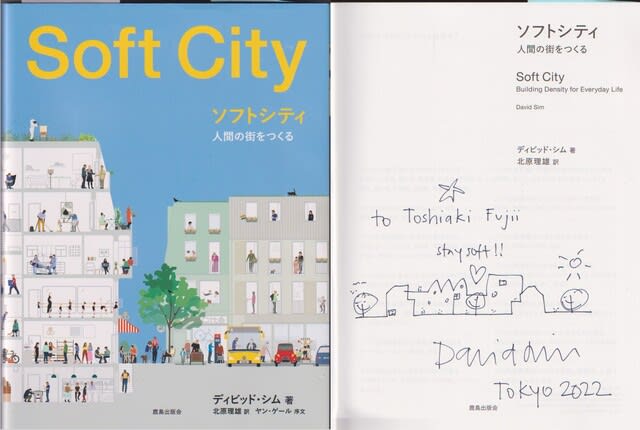 Soft City
ソフトシティ
人間の街をつくる
ディビッド・シム 著
北原理雄 訳 ヤン・ゲール 序文
鹿島出版会
ソフトシティ
人間の街をつくる
Soft City
Building Density for Everyday Life
David Sim
ディビッド・シム 著
北原理雄 訳
to Toshiaki Fujii
stay soft!!
David Sim
TOKYO 2022
鹿島出版会